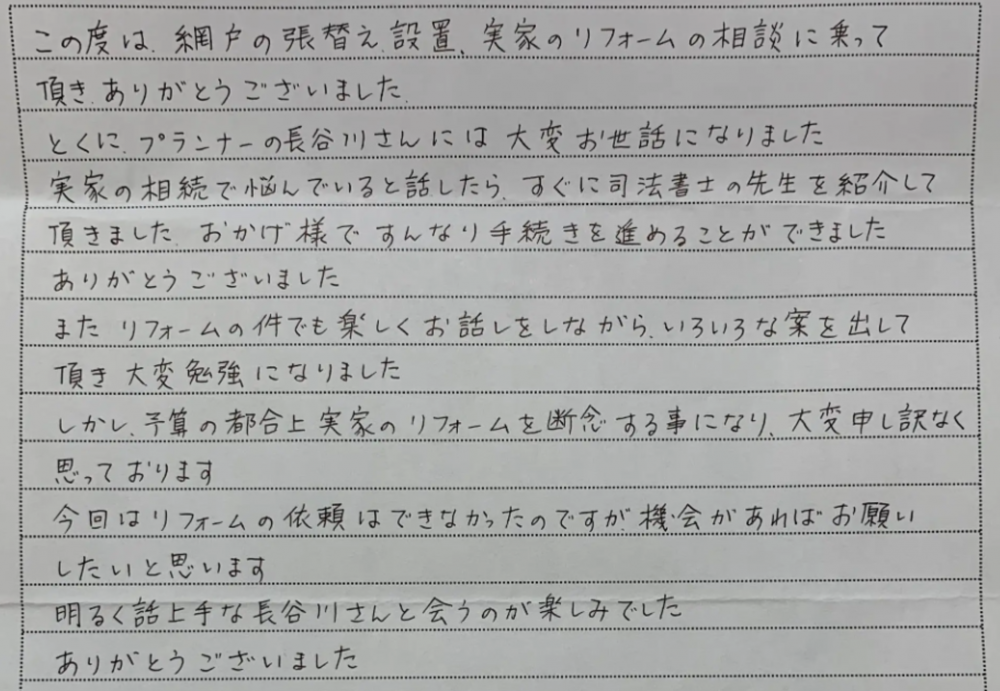 この度は、網戸の張替え、設置、実家のリフォームの相談に乗って
頂き、ありがとうございました。
とくに、プランナーの長谷川さんには大変お世話になりました
実家の相続で悩んでいると話したら、すぐに司法書士の先生を紹介して
頂きました。おかげ様ですんなり手続きを進めることができました
ありがとうございました
また リフォームの件でも楽しくお話しをしながら、いろいろな案を出して
頂き 大変勉強になりました
しかし、予算の都合上 実家のリフォームを断念する事になり、大変申し訳なく
思っております
今回はリフォームの依頼はできなかったのですが、機会があればお願い
したいと思います
明るく話上手な長谷川さんと会うのが楽しみでした
ありがとうございました